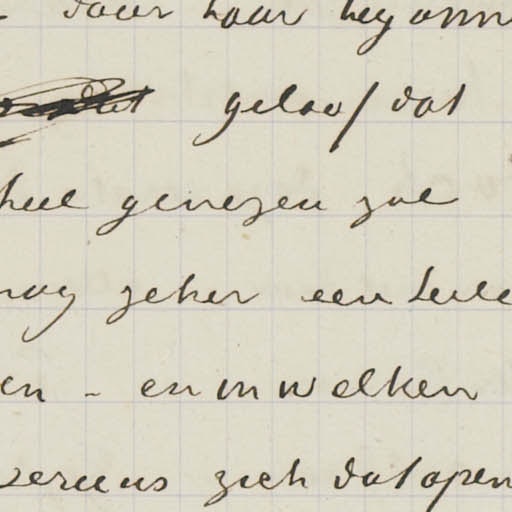 daar haar begonn
geloof dat
heel genezen zal
nog zeker een heele
en - en in welken
zich dat open